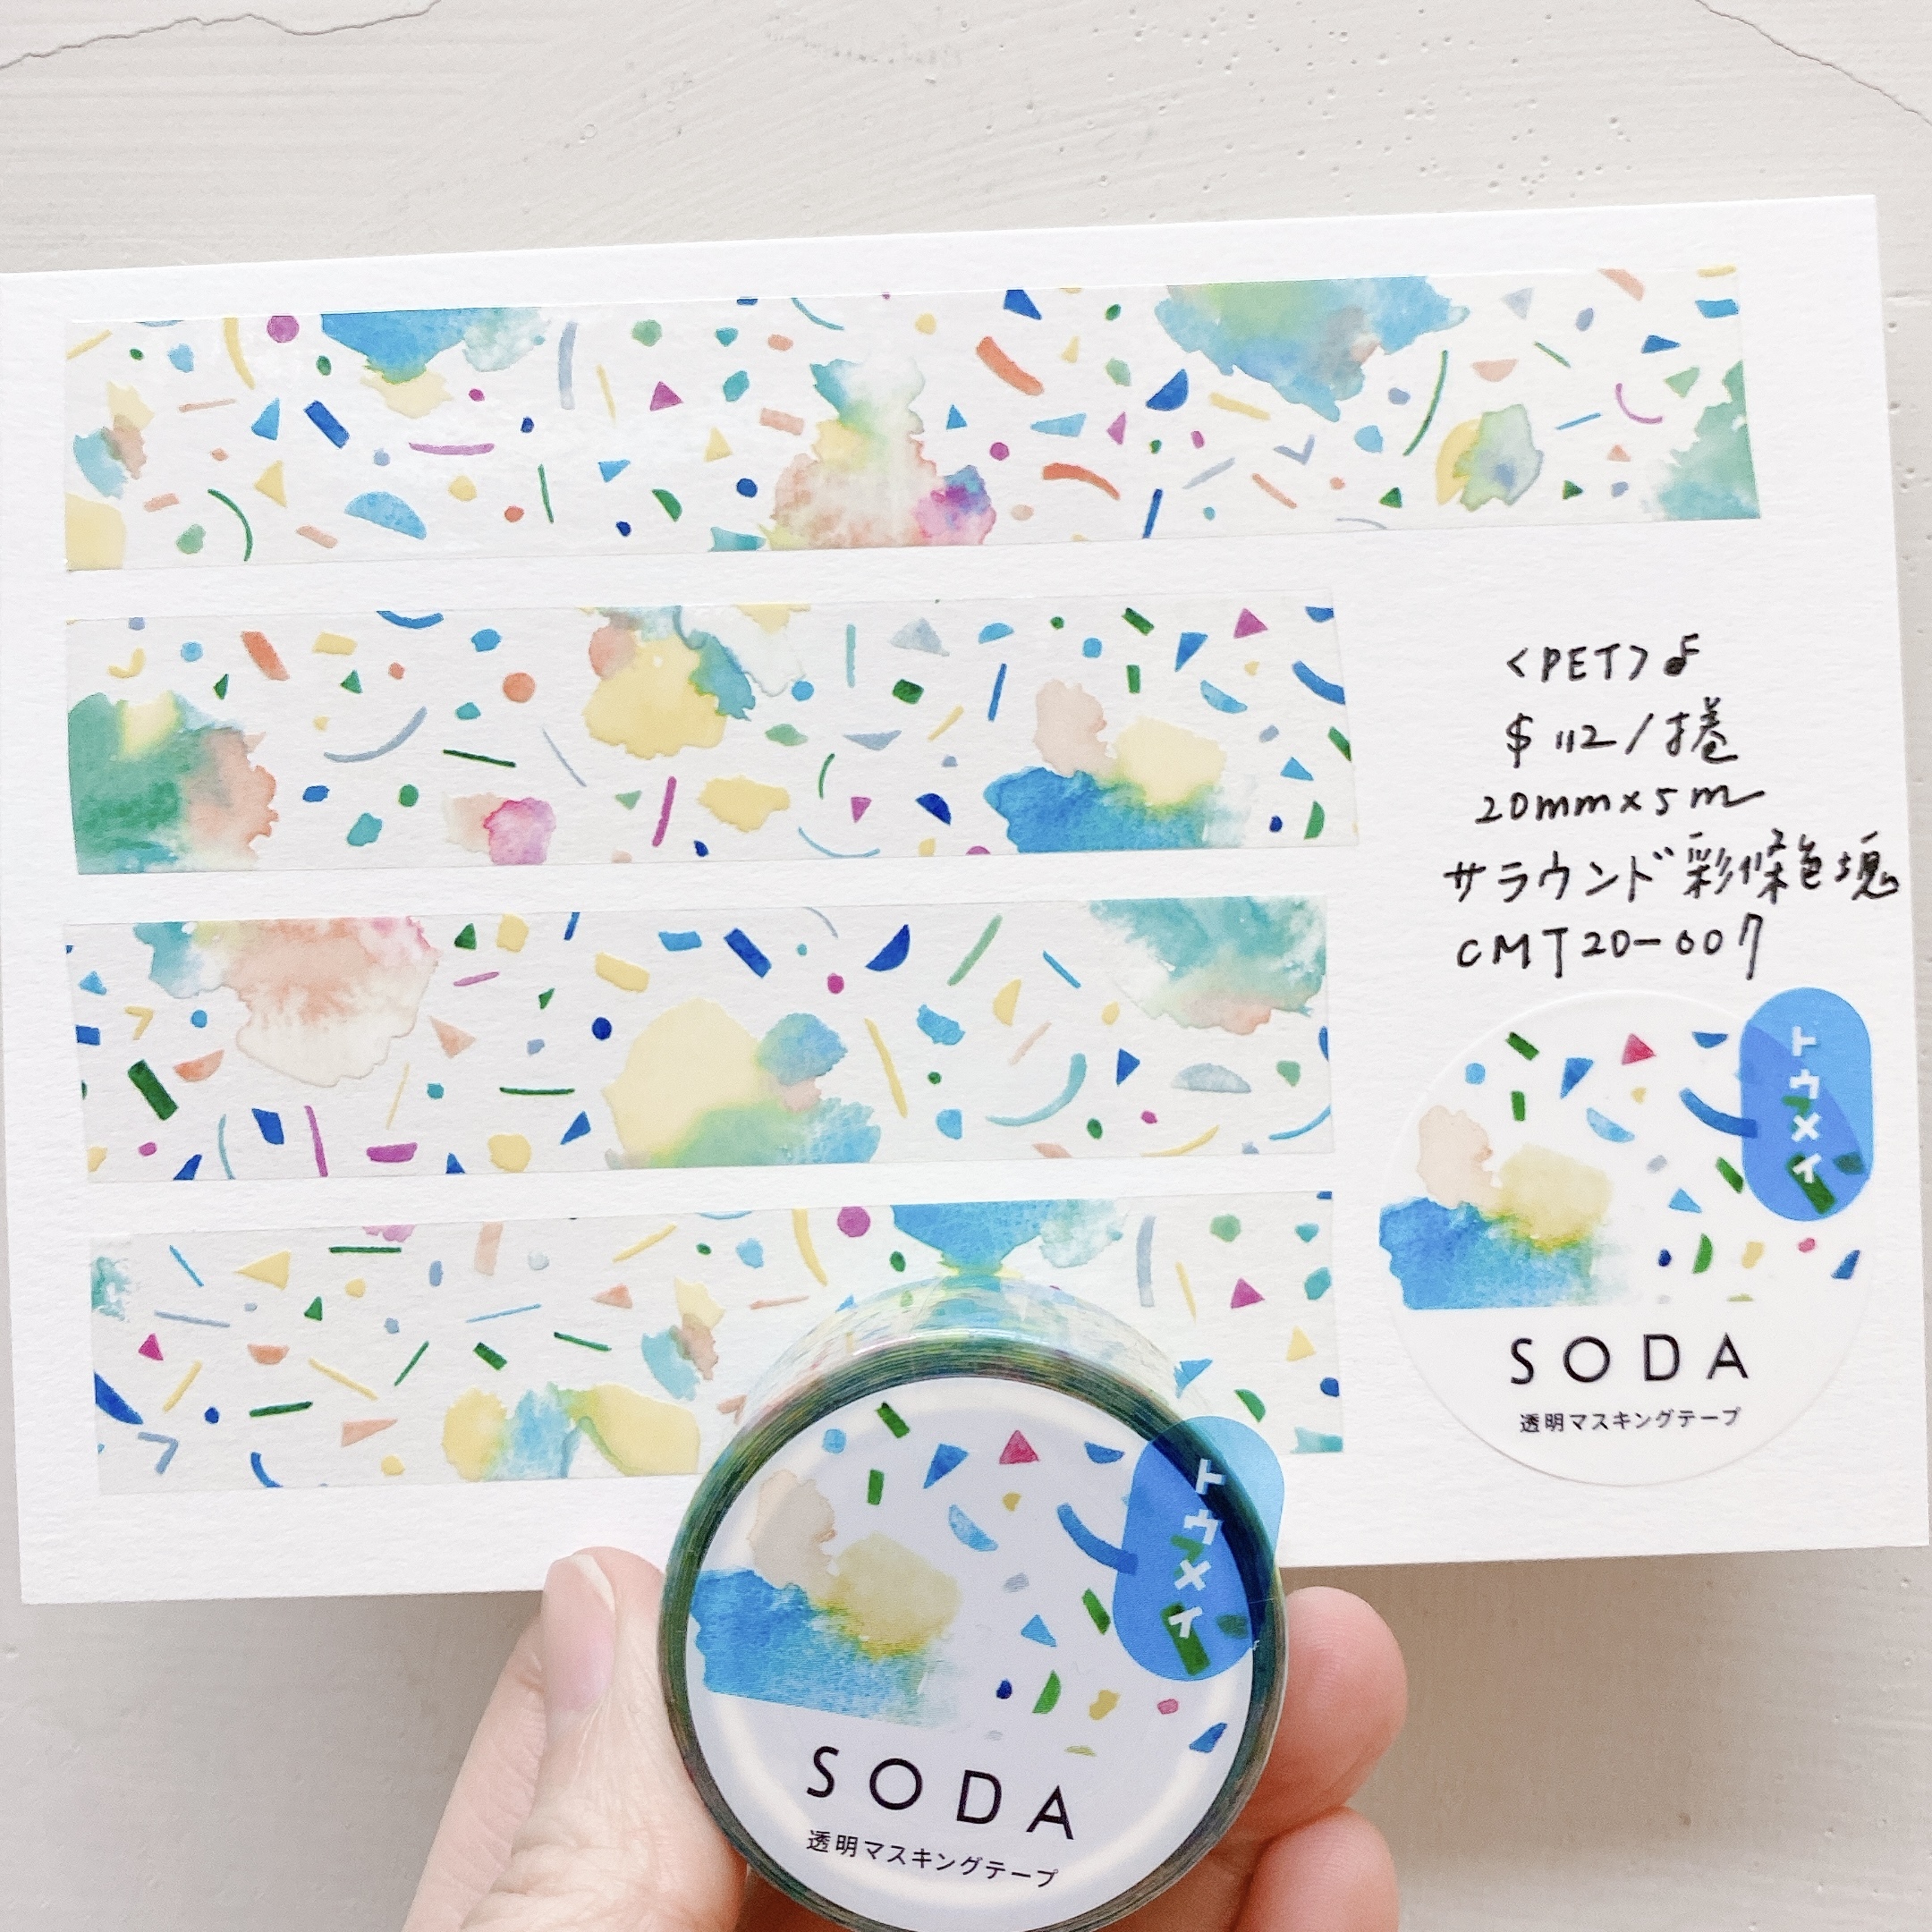 <PET>♪
$112/捲
20mm×5m
サラウンド彩條色塊
CMT20-007
トウメイ
SODA
透明マスキングテープ
トウメイ
SODA
透明マスキングテープ